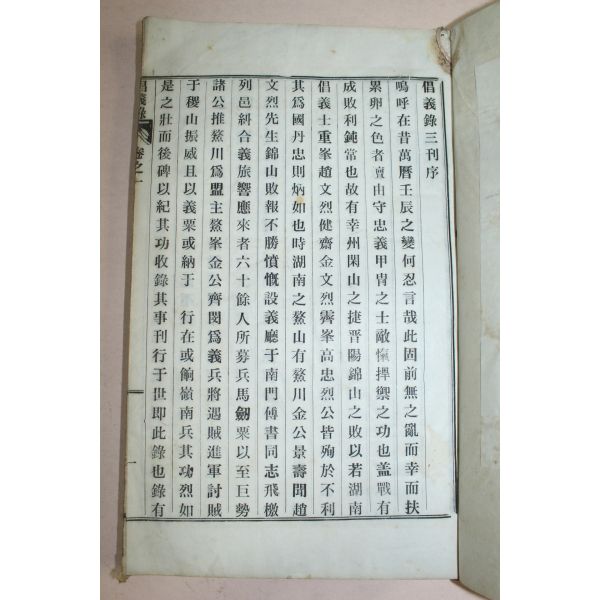 倡義錄三刊序
嗚呼在昔萬曆壬辰之變何忍言哉此固前無之亂而幸而扶
累卵之色者亶由守忠義甲冑之士敵愾捍禦之功也盖戰有
成敗利鈍常也故有幸州閑山之捷晋陽錦山之敗以若湖南
倡義士重峯趙文烈健齋金文烈霽峯高忠烈公皆殉於不利
其爲國丹忠則炳如也時湖南之鰲山有鰲川金公景壽聞趙
文烈先生錦山敗報不勝憤慨設義廳于南門傳書同志飛檄
列邑糾合義旅響應來者六十餘人所募兵馬劒粟以至巨勢
諸公推鰲川爲盟主鰲峯金公齊閔爲義兵將遇賊進軍討賊
于稷山振威且以義粟或納于 行在或餉嶺南兵其功烈如
是之壯而後碑以紀其功收錄其事刊行于世即此錄也錄有
倡義錄
卷之一
一